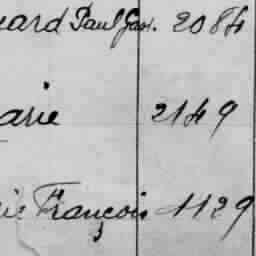 uard Paul Gast. 2084
arie 2149
ie François 1129